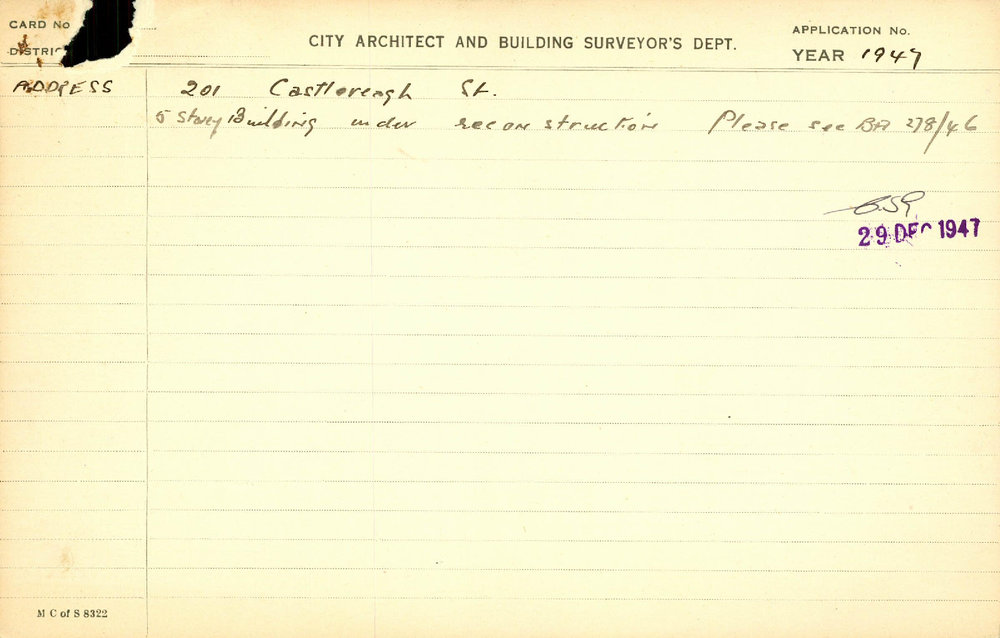 CARD No
CITY ARCHITECT AND BUILDING SURVEYOR'S DEPT.
APPLICATION No.
DISTRIC
YEAR 1947
ADDRESS
201 Castlereagh St.
5 Storey Building under reconstruction Please see BA 278/46
29 DEC 1947
M C of S 8322